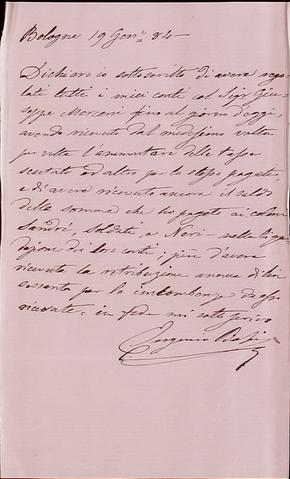 Bologna 19 Genº 84—
Dichiaro io sottoscritto di avere rego
lati tutti i miei conti col Sigr Giu
seppe Marconi fino al giorno d'oggi,
avendo ricevuto dal medesimo volta
per volta l'ammontare delle tasse
ed altro per lo stesso pagate,
e di avere ricevuto ancora il saldo
delle somme che ho pagato ai coloni
Sandri, e Neri - nella liqui
dazione di loro conti; più d'avere
ricevuta la retribuzione annua di lire
per le incombenze da esso
ricevute. in fede mi sottoscrivo
Eugenio